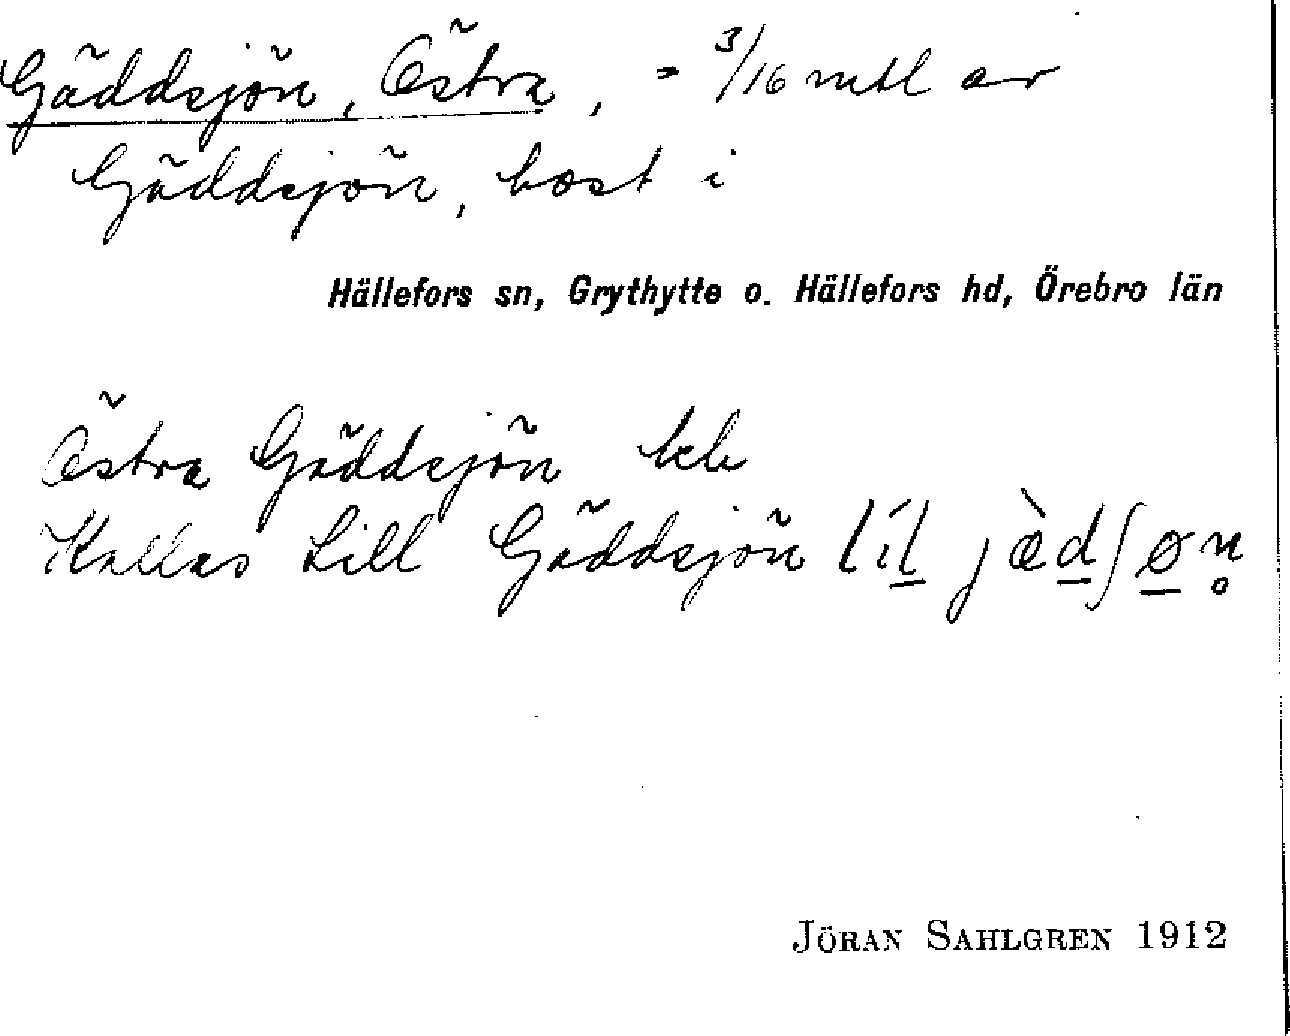 Gäddsjön, Östra, = 3/16 mtl av
Gäddsjön, bost i
Hällefors sn, Grythytte o. Hällefors hd, Örebro län
Östra Gäddsjön
Kallas Lill Gäddsjön
JÖRAN SAHLGREN 1912